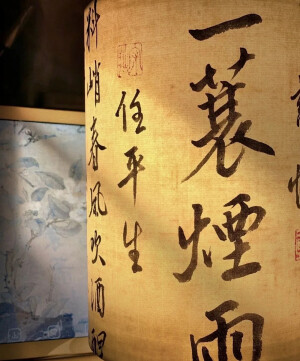 一蓑煙雨
任平生
料峭春風吹酒醒